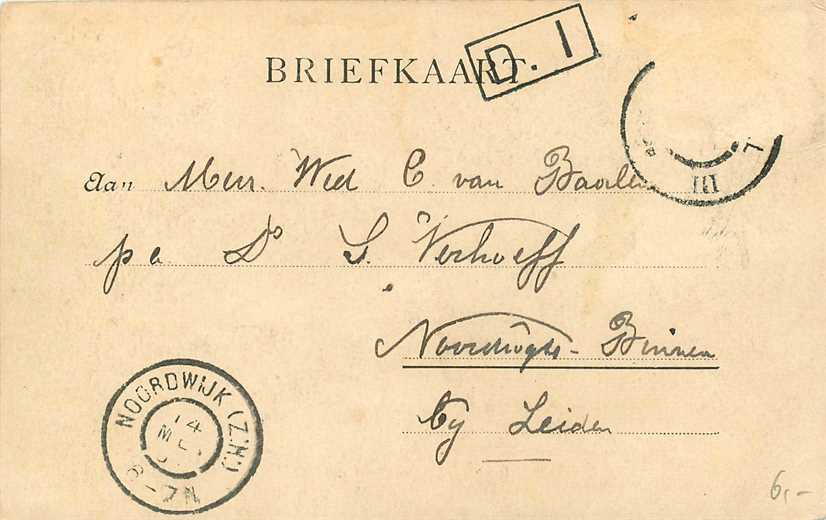 BRIEFKAART
D. 1
III
Aan Mevr. Wed C. van Baalen
p a. Ds G. Verhoeff
Noordwijk - Binnen
by Leiden
NOORDWIJK (Z:H:)
14
MEI
6-7N
6,-